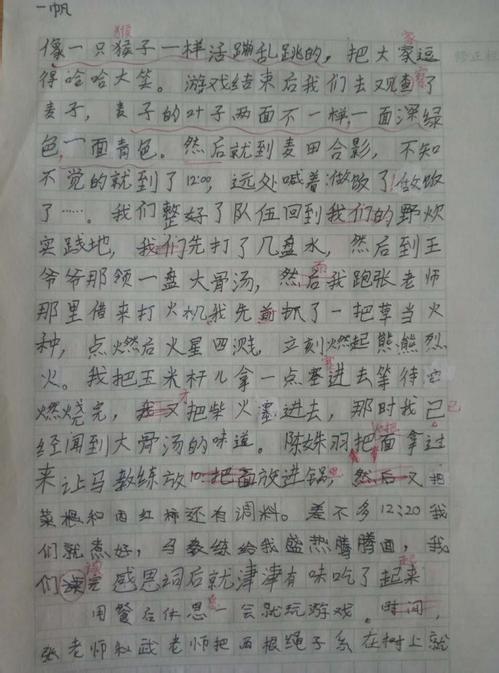 一帆
像一只猴子一样活蹦乱跳的，把大家逗
得哈哈大笑。游戏结束后我们去观查了
麦子，麦子的叶子两面不一样，一面深绿
色，一面青色。然后就到麦田合影，不知
不觉的就到了12:00，远处喊着"做饭了！做饭
了……。我们整好了队伍回到我们的野炊
实践地，我们先打了几盘水，然后到王
爷爷那领一盘大骨汤，然后我跑张老师
那里借来打火机我先前抓了一把草当火
种，点燃后火星四溅，立刻燃起熊熊烈
火。我把玉米杆儿拿一点塞进去等待它
燃烧完，我又把柴火塞进去，那时我己
经闻到大骨汤的味道。陈姝羽把面拿过
来让马教练放10把面放进锅，然后又把
菜根和西红柿还有调料。差不多12:20我
们就煮好，马教练给我盛热腾腾面，我
们完感恩词后就津津有味吃了起来
用餐后休息一会就玩游戏。时间，
张老师和武老师把两根绳子系在树上就